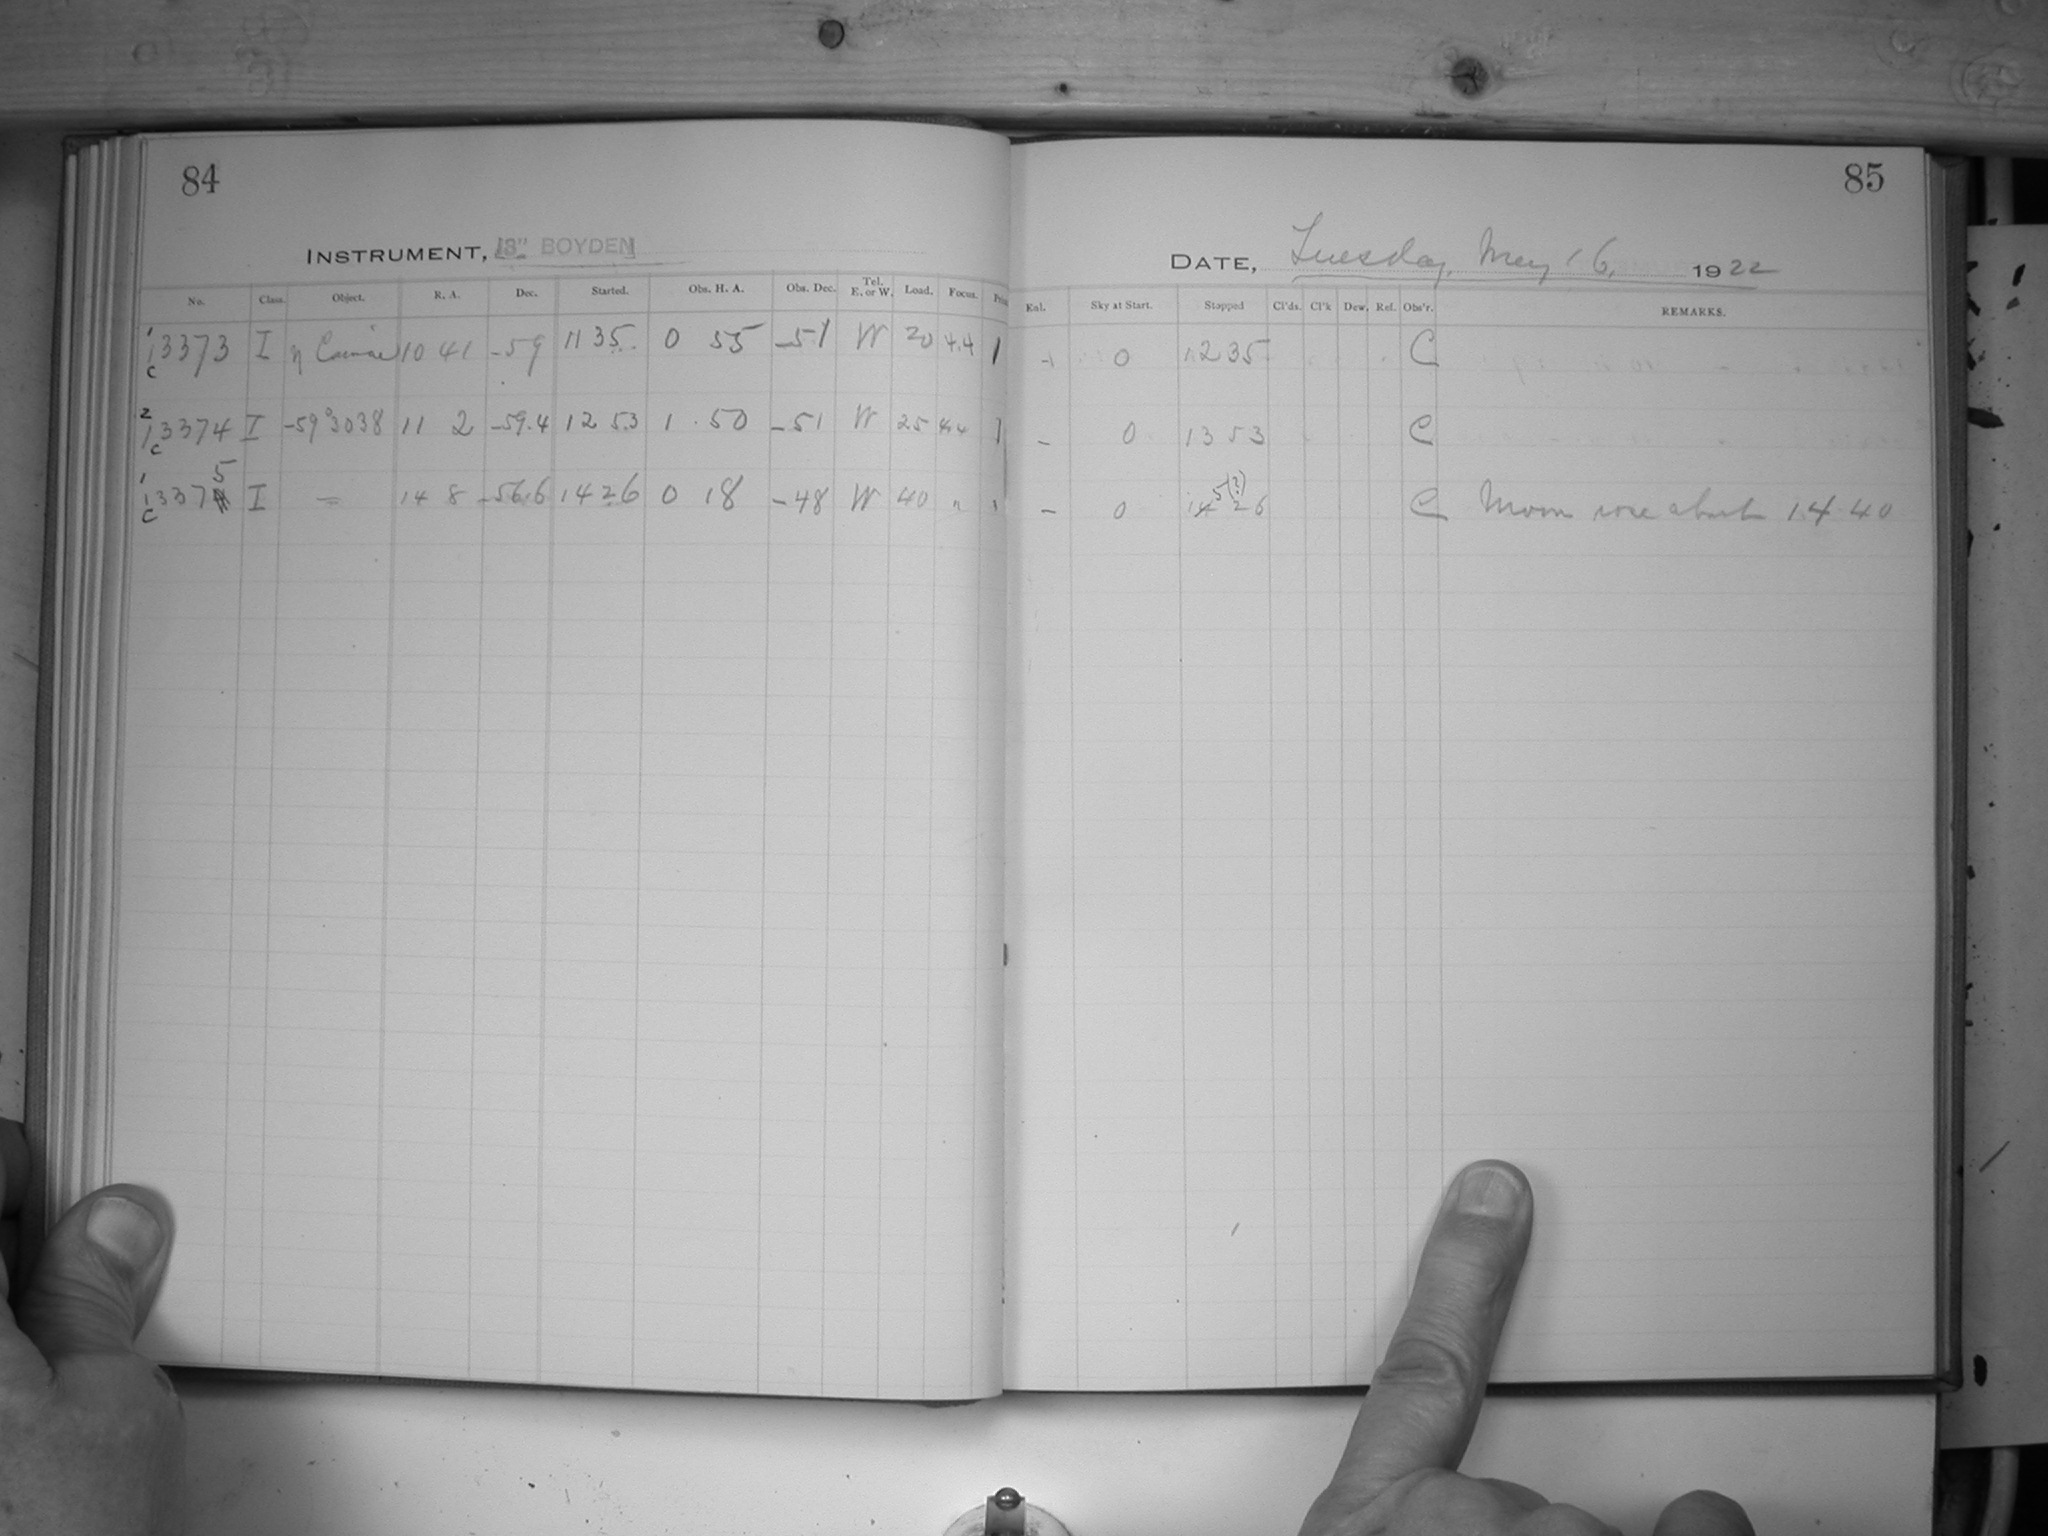 84
INSTRUMENT, 13" BOYDEN
No. Class. Object. R. A. Dec. Started. Obs. H. A. Obs. Dec. Tel. E. or W. Load. Focus.
1 13373 C I η Carinae 10 41 -59 11 35 0 55 -51 W 20 4.4 1
2 13374 C I -59°3038 11 2 -59.4 12 53 1 50 -51 W 25 4.4 1
1 13375 C I = 14 8 -56.6 14 26 0 18 -48 W 40 " "
85
DATE, Tuesday, May 16, 1922
Enl. Sky at Start. Stopped Cl'ds. Cl'k Dew. Ref. Obs'r. REMARKS.
0 12 35 C
- 0 13 53 C
- 0 14 5(?) 26 C Moon rose about 14 40